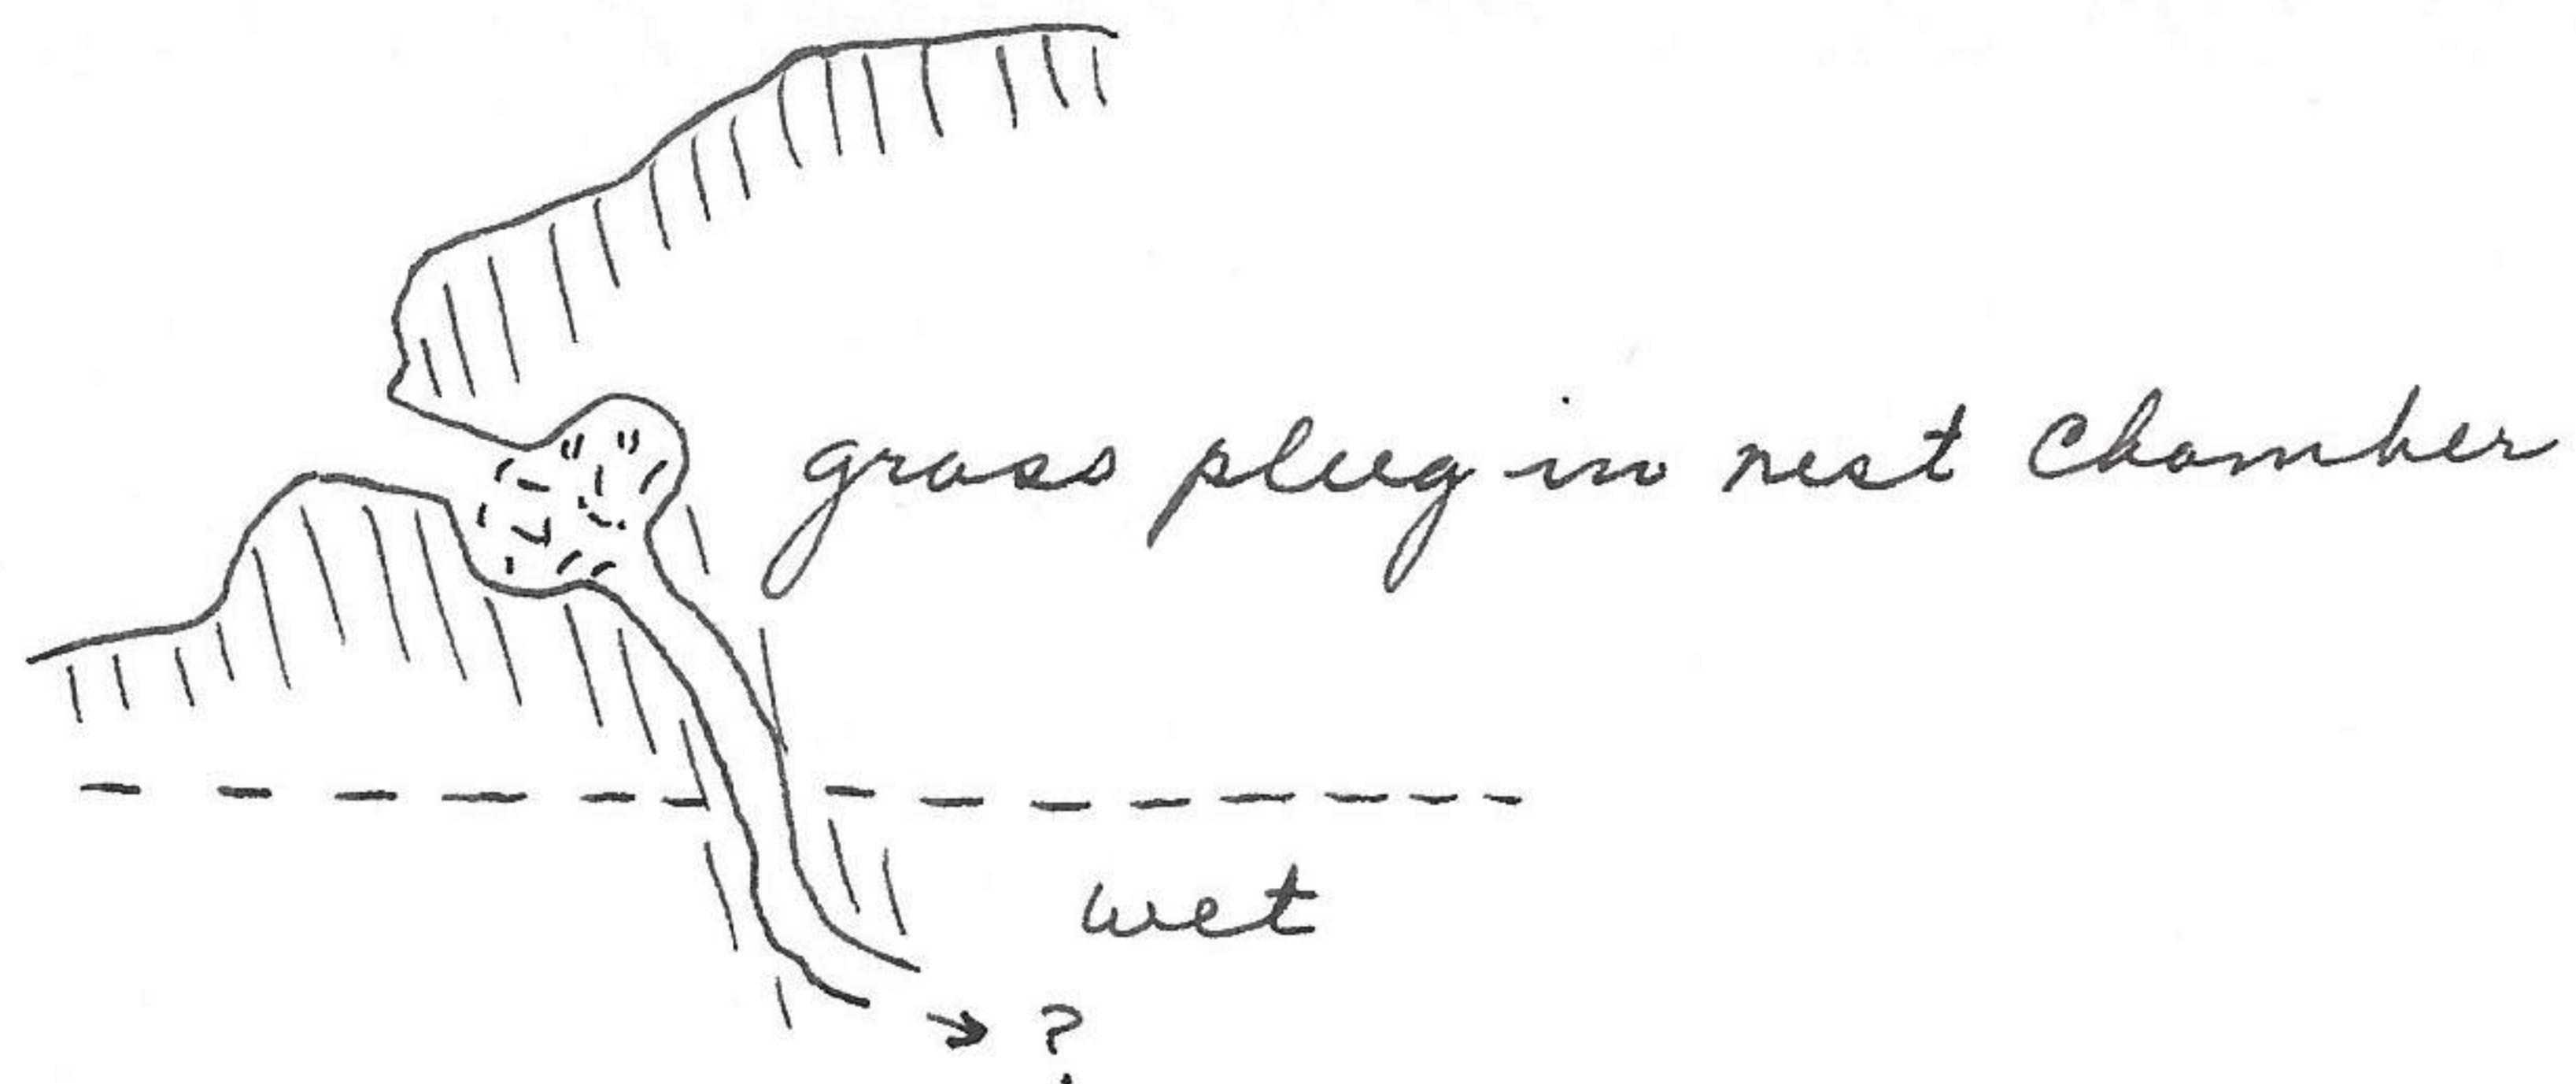 grass plug in nest chamber
wet
→ ?